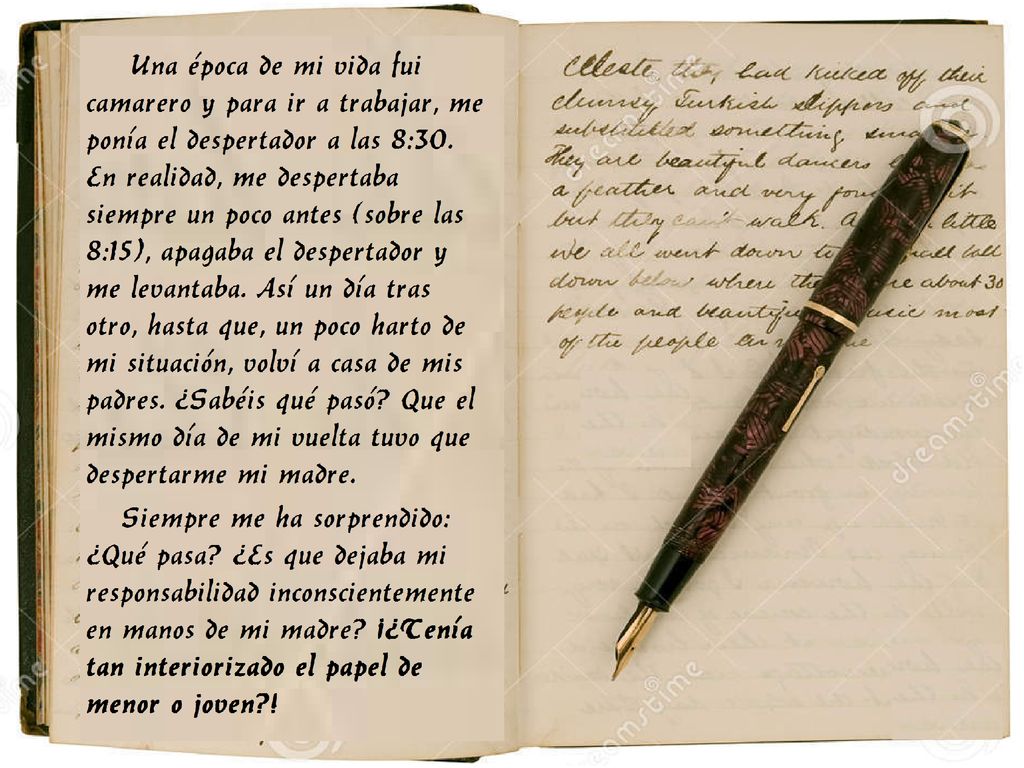 Una época de mi vida fui
camarero y para ir a trabajar, me
ponía el despertador a las 8:30.
En realidad, me despertaba
siempre un poco antes (sobre las
8:15), apagaba el despertador y
me levantaba. Así un día tras
otro, hasta que, un poco harto de
mi situación, volví a casa de mis
padres. ¿Sabéis qué pasó? Que el
mismo día de mi vuelta tuvo que
despertarme mi madre.
Siempre me ha sorprendido:
¿Qué pasa? ¿Es que dejaba mi
responsabilidad inconscientemente
en manos de mi madre? ¡¿Tenía
tan interiorizado el papel de
menor o joven?!
Celeste they had kicked off their
clumsy Turkish slippers and
substituted something
They are beautiful dancers
a feather and very it
but they can't walk. little
we all went down
down below where about 30
people and most
of the people
dreamstime